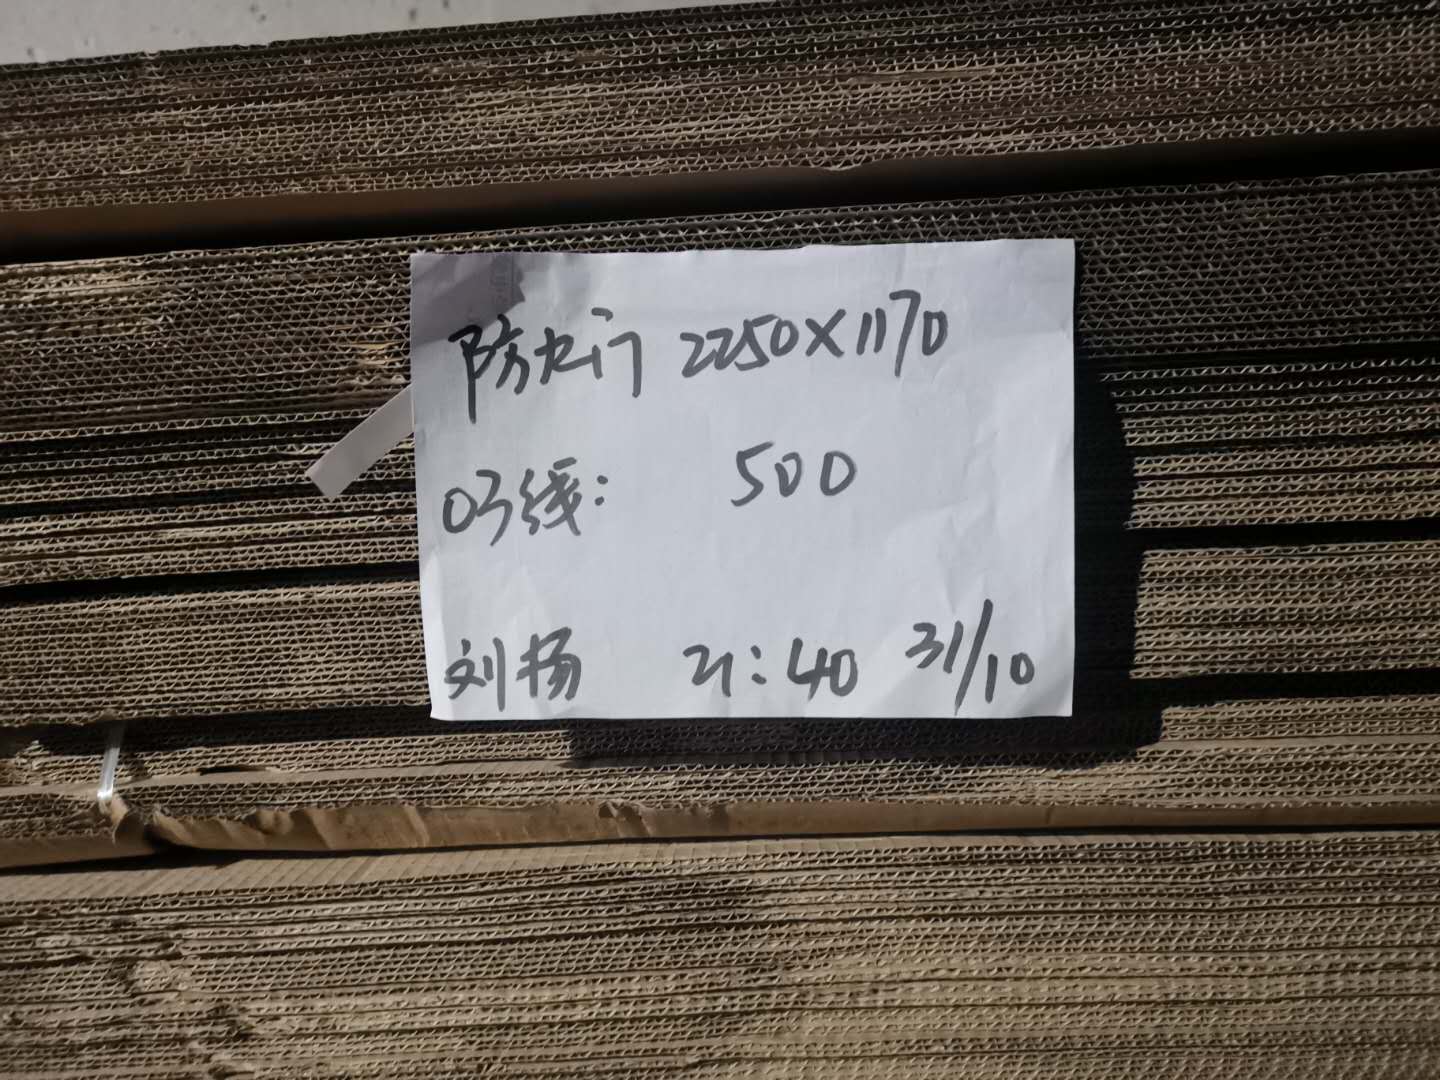 防火门 2250×1170
03线: 500
刘扬 21:40 31/10